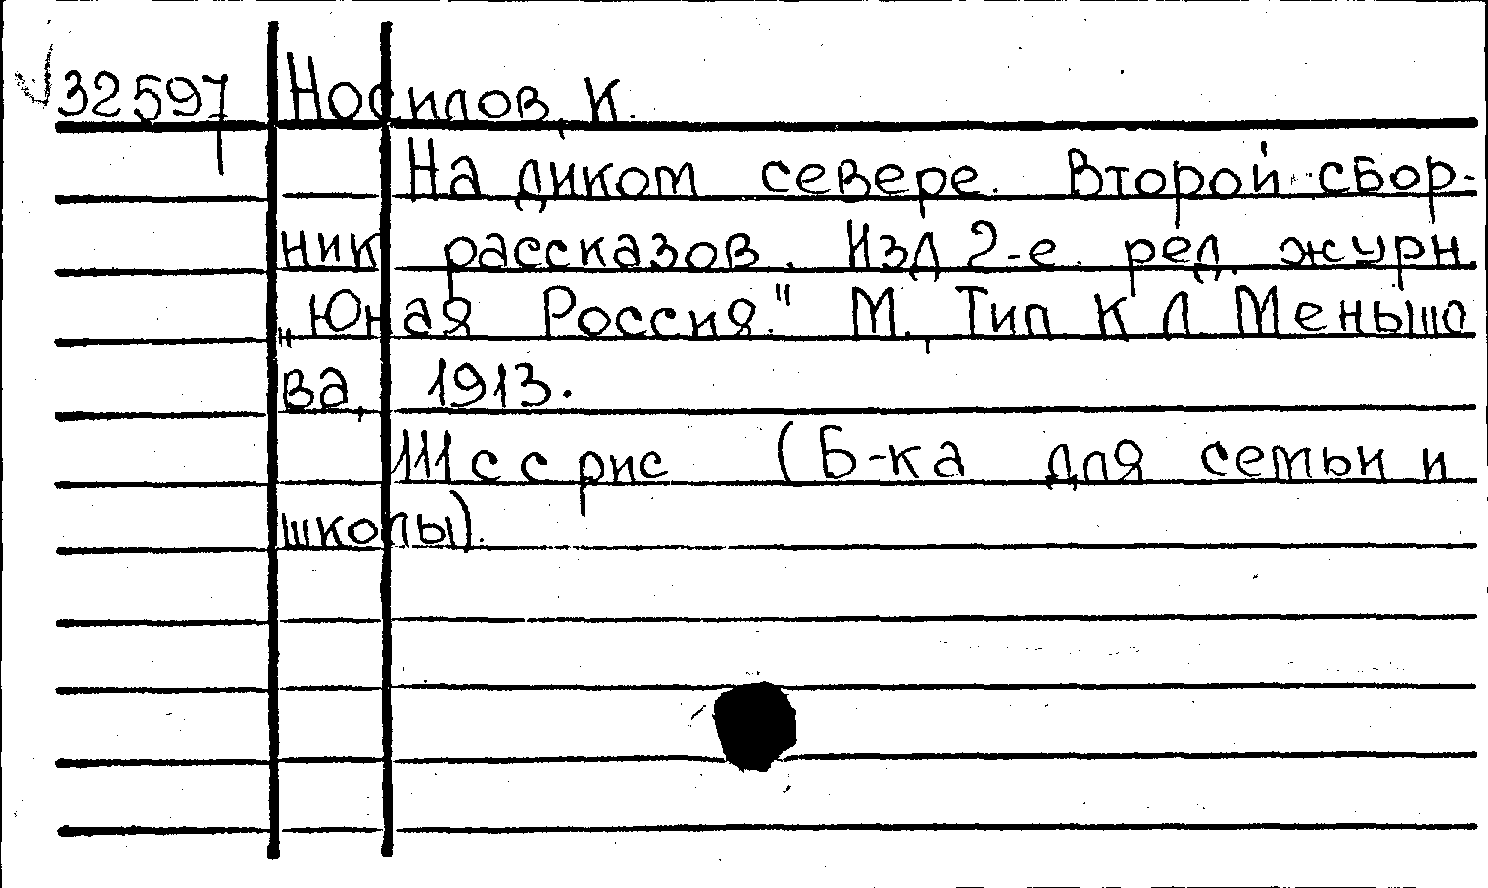 32597 Носилов, К.
На диком севере. Второй сбор-
ник рассказов. Изд 2-е ред. журн.
„Юная Россия." М. Тип К Л Меньшо
ва, 1913.
111 с с рис (Б-ка для семьи и
школы).